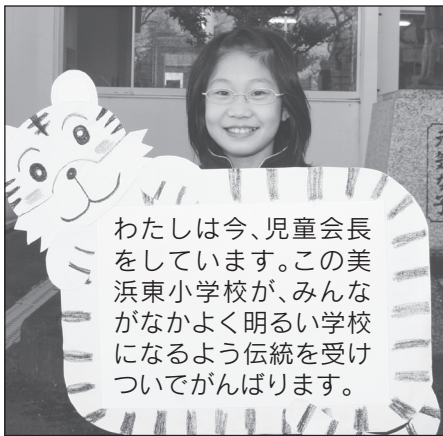 わたしは今、児童会長
をしています。この美
浜東小学校が、みんな
がなかよく明るい学校
になるよう伝統を受け
ついでがんばります。